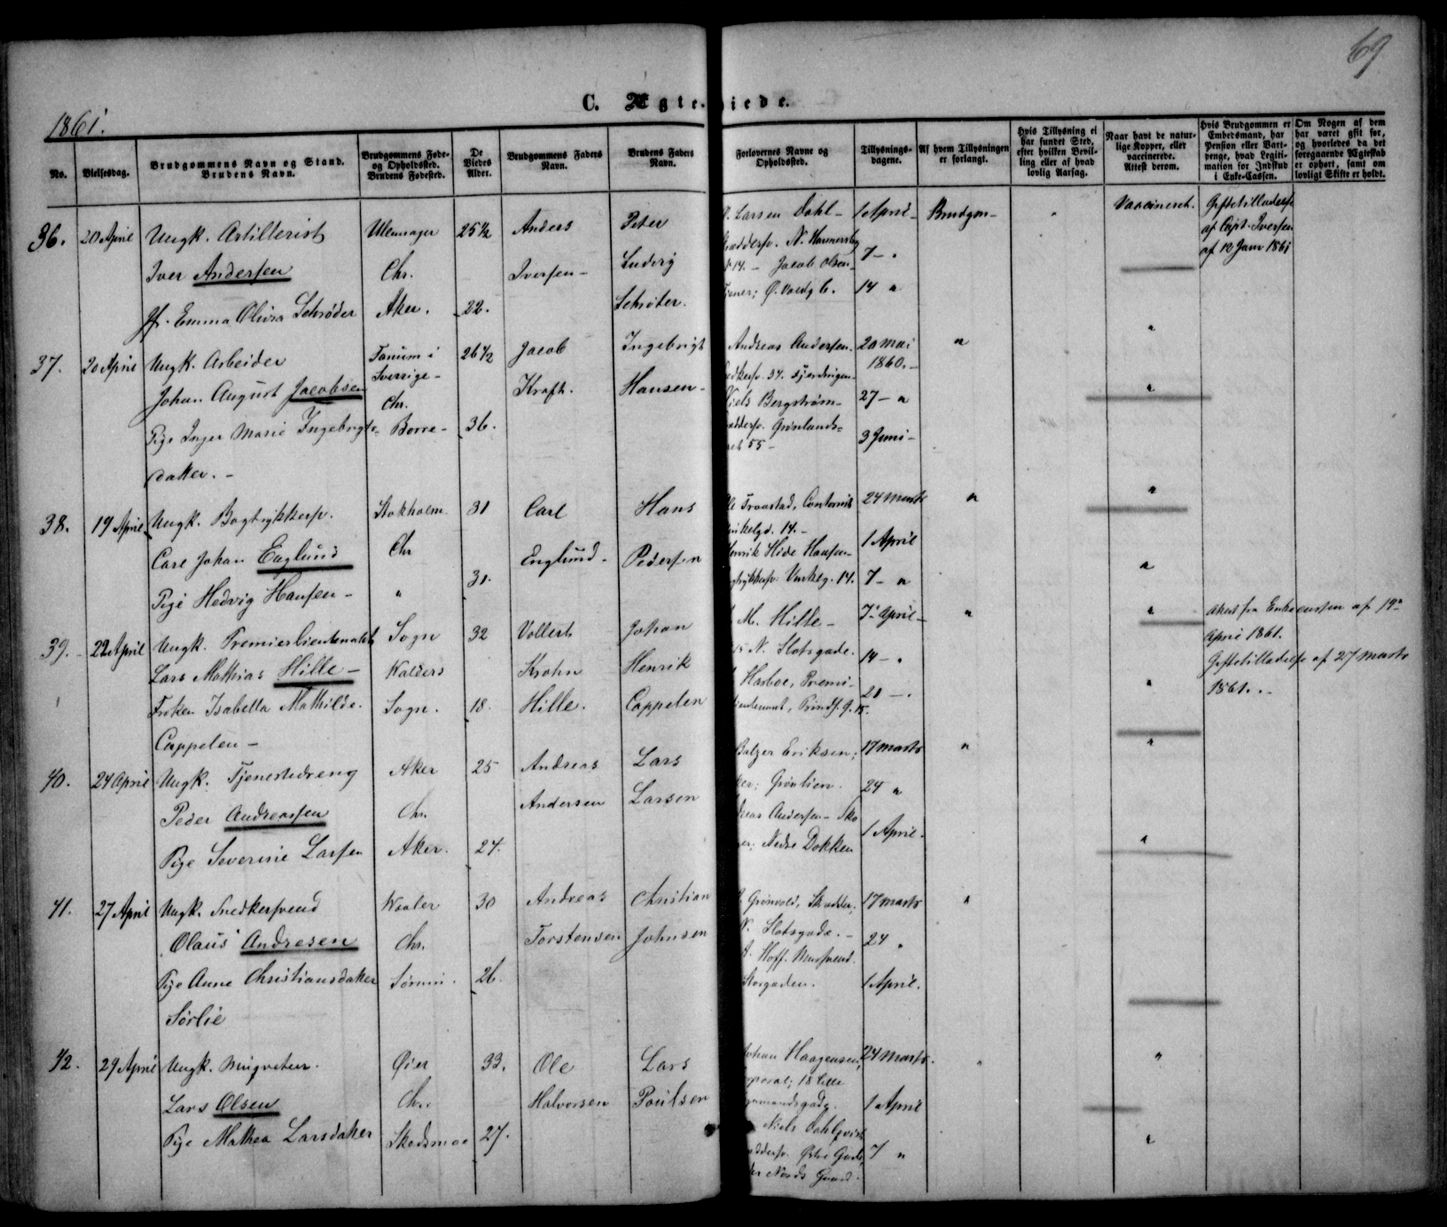 69
1861.
C. Ægteviede.
No.
Vielsesdag.
Brudgommens Navn og Stand.
Brudens Navn.
Brudgommens Føde- og Opholdssted.
Brudens Fødested.
De Viedes Alder.
Brudgommens Faders Navn.
Brudens Faders Navn.
Forlovernes Navne og Opholdssted.
Tillysningsdagene.
Af hvem Tillysningen er forlangt.
Hvis Tillysning ei har fundet Sted, efter hvilken Bevilling eller af hvad lovlig Aarsag.
Naar havt de naturlige Kopper, eller vaccinerede. Attest derom.
Hvis Brudgommen er Embedsmand, har Pension eller Vartpenge, hvad Legitimation for Indskud i Enke-Cassen.
Om Nogen af dem har været gift før, og hvorledes da det foregaaende Ægteskab er ophørt, samt om lovligt Skifte er holdt.
36. 20 April Ungk. Artillerist
Iver Andersen
Jf. Emma Olivia Schrøder
Ullensager
Chr.
Aker.
25 1/2
22.
Anders
Iversen
Peder
Ludvig
Schrøter.
Larsen Dahl
N. Hammersb
14. Jacob Olsen
Ø. Voldg 6.
1 April
7 "
14 "
Brudgom
Vaccineret.
Giftetilladelse
af Capt. Iversen
af 12 Janr 1861
37. 20 April Ungk. Arbeider
Johan August Jacobsen
Pige Inger Marie Ingebrigts-
datter.
Tanum i
Sverrige
Chr.
Borre
26 1/2
36.
Jacob
Kraft.
Ingebrigt
Hansen
Andreas Andersen
34. Fjerdingen
Niels Bergstrøm
Grønlands-
55
20 Mai
1860.
27 "
3 Juni
38. 19 April Ungk. Bogtrykkersv.
Carl Johan Englund
Pige Hedvig Hansen
Stokholm
Chr
"
31
31.
Carl
Englund
Hans
Pedersen
Traastad, Contorist
14.
Henrik Hansen
Vinkelg. 14.
24 Marts
1 April
7 "
39. 22 April Ungk. Premierlieutenant
Lars Mathias Hille
Frøken Isabella Mathilde
Cappelen
Sogn
Sogn.
32
18.
Vollert
Krohn
Hille.
Johan
Henrik
Cappelen
M. Hille
N. Slotsgade.
Harboe, Premi-
lieutenant, Prindsg. 15.
7 April
14 "
21
Attest fra Enkecassen af 19
April 1861.
Giftetilladelse af 27 Marts
1861.
40. 24 April Ungk. Tjenestedreng
Peder Andreassen
Pige Severine Larsen
Aker
Chr.
Aker.
25
24.
Andreas
Andersen
Lars
Larsen
Balzer Eriksen
Grønlien.
Andersen Sko
Nedre Dokken
17 Marts
24 "
1 April
41. 27 April Ungk. Snedkersvend
Olaus Andresen
Pige Anne Christiansdatter
Sørlie
Waaler
Chr.
30
26.
Andreas
Torstensen
Christian
Johnsen
Grønvold, Skredder
Slotsgade.
Hoff. Mursvend
Storgaden.
17 Marts
24 "
1 April.
42. 29 April Ungk.
Lars Olsen
Pige Mathea Larsdatter
Øier
Chr.
Skedsmoe
33.
27.
Ole
Halvorsen
Lars
Poulsen
Johan Haagensen
18 Lille
Niels Dahlqvist
Gaard
24 Marts
1 April
7 "